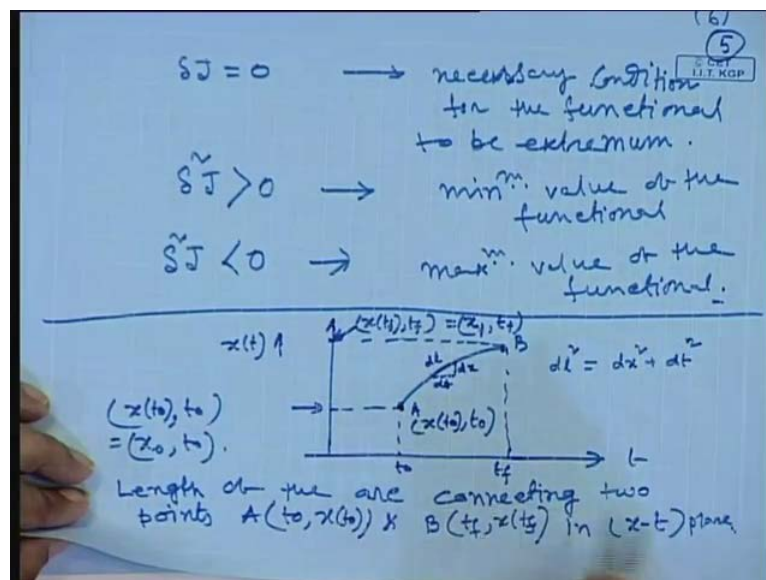 (6)
5
© CET
I.I.T. KGP
δJ = 0 → necessary condition
for the functional
to be extremum.
δ²J > 0 → minᵐ. value of the
functional
δ²J < 0 → maxᵐ. value of the
functional.
x(t) ↑ (x(tf), tf) = (xf, tf)
B
dl dx
dt
dl² = dx² + dt²
(x(t0), t0)
= (x0, t0).
A
(x(t0), t0)
t0 tf t
Length of the arc connecting two
points A(t0, x(t0)) & B(tf, x(tf)) in (x-t) plane.